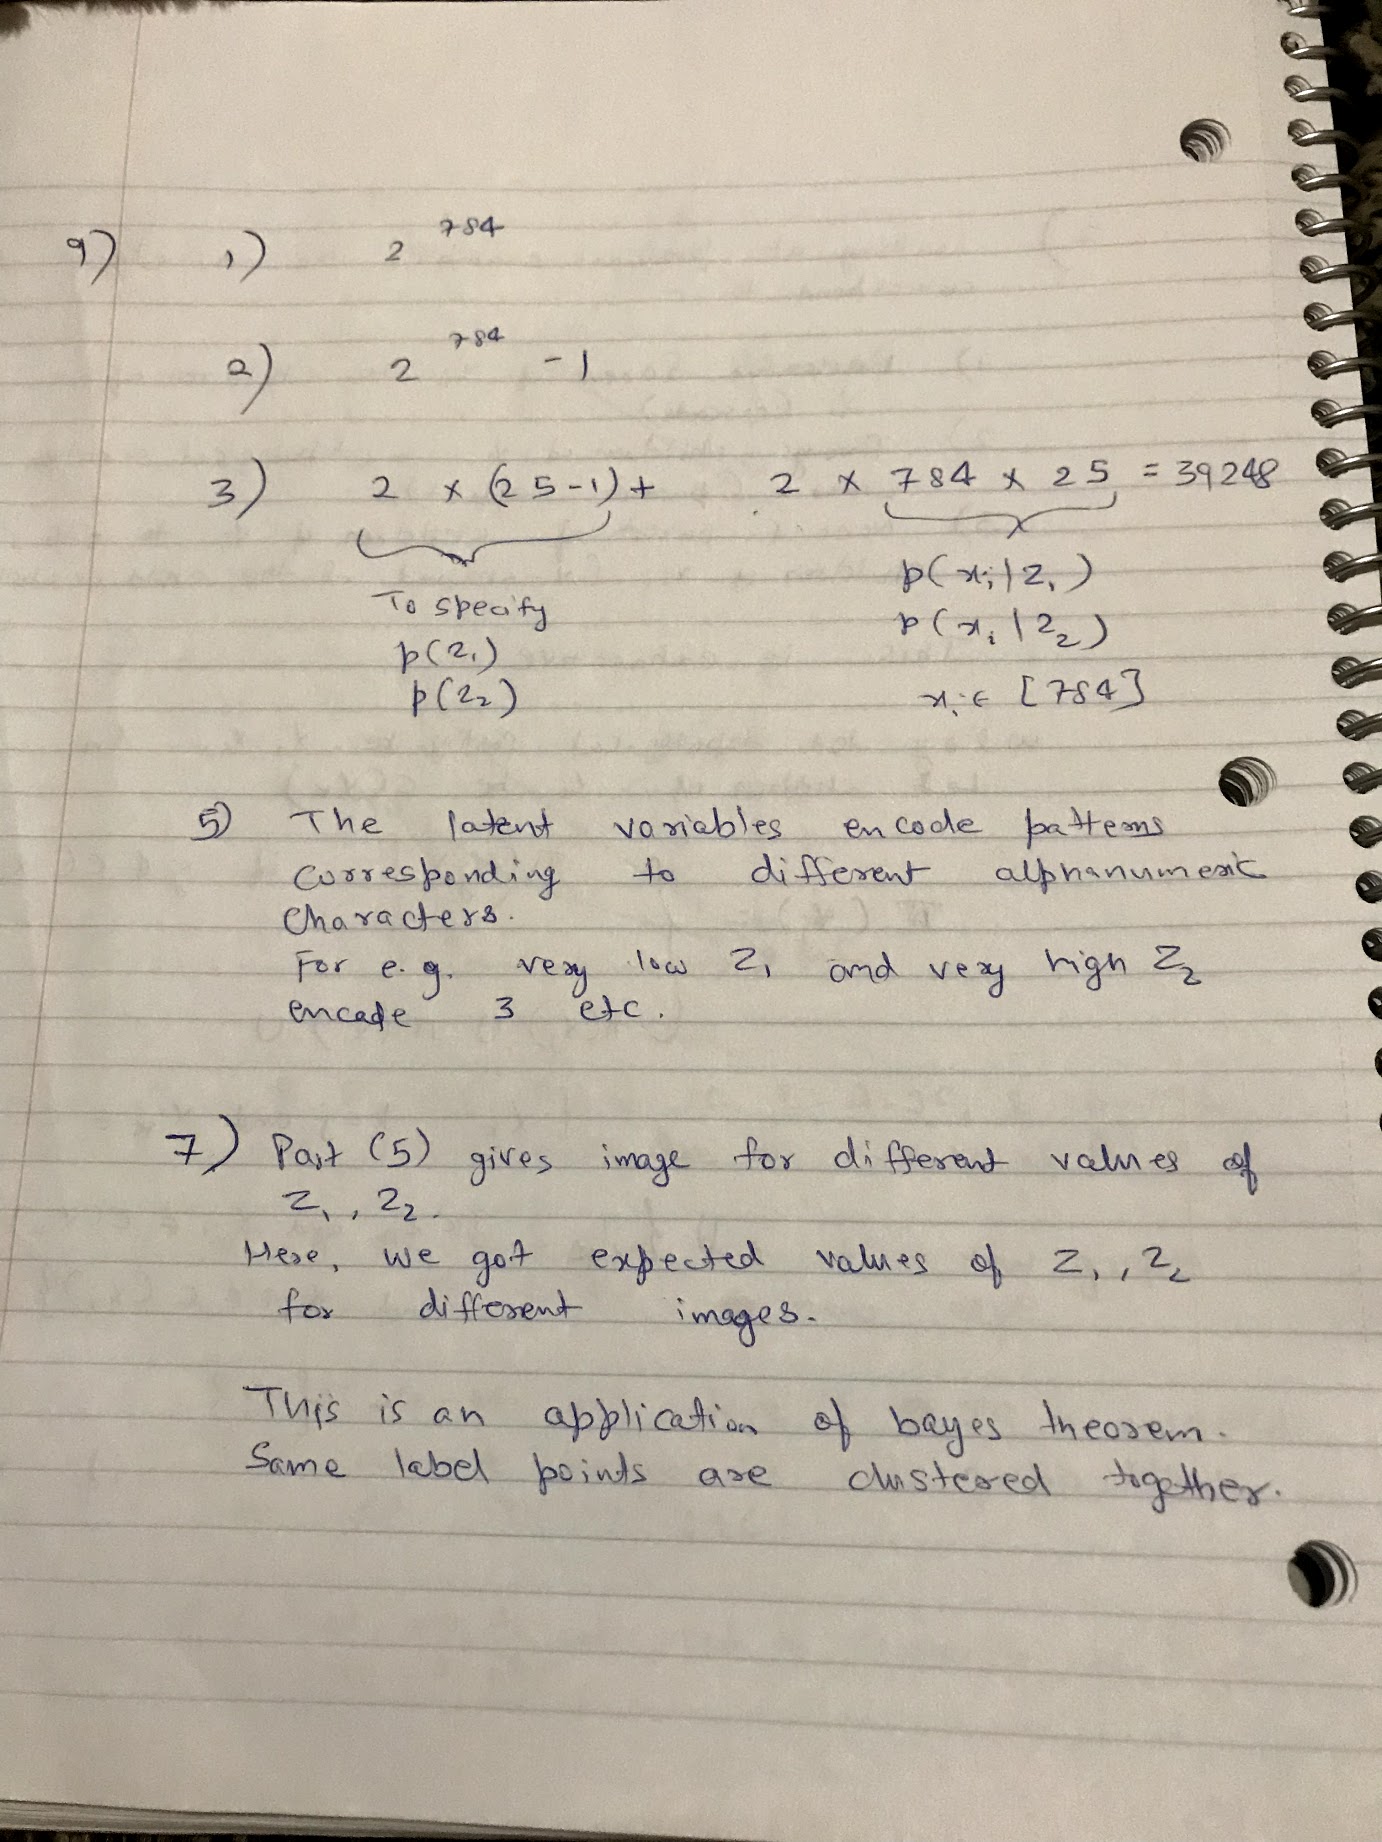 9) 1) 2^784
2) 2^784 - 1
3) 2 × (25-1) + 2 × 784 × 25 = 39248
To specify
p(z₁)
p(z₂)
p(xᵢ|z₁)
p(xᵢ|z₂)
xᵢ ∈ [784]
5) The latent variables encode patterns
corresponding to different alphanumeric
characters.
For e.g. very low z₁ and very high z₂
encode 3 etc.
7) Part (5) gives image for different values of
z₁, z₂.
Here, we got expected values of z₁, z₂
for different images.
This is an application of bayes theorem.
Same label points are clustered together.